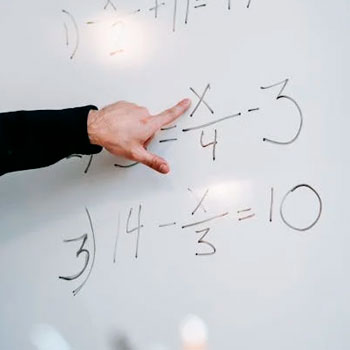 1) - x/2 + 11 =
= x/4 - 3
3) 14 - x/3 = 10